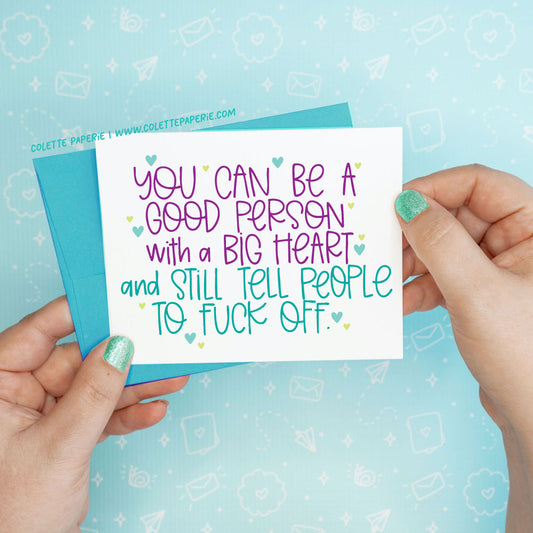 COLETTE PAPERIE | WWW.COLETTEPAPERIE.COM
YOU CAN BE A
GOOD PERSON
with a BIG HEART
and STILL TELL PEOPLE
TO FUCK OFF.